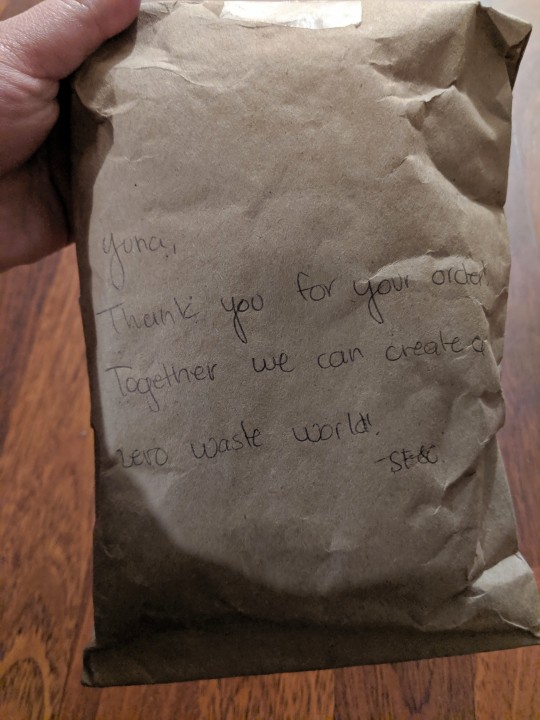 Yuna,
Thank you for your order!
Together we can create a
zero waste world!